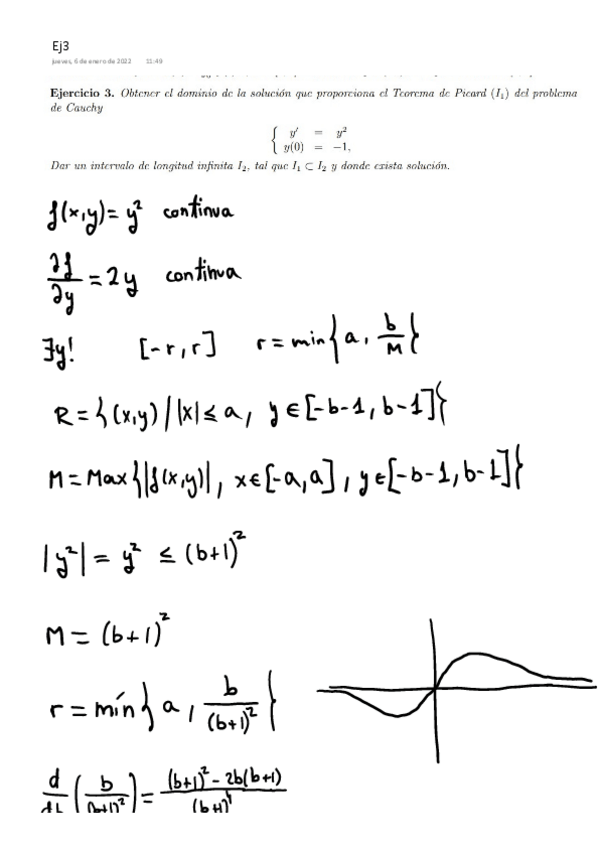 Ej3
jueves, 6 de enero de 2022 11:49
Ejercicio 3. Obtener el dominio de la solución que proporciona el Teorema de Picard (I₁) del problema
de Cauchy
{ y' = y²
y(0) = −1,
Dar un intervalo de longitud infinita I₂, tal que I₁ ⊂ I₂ y donde exista solución.
f(x,y) = y² continua
∂f/∂y = 2y continua
∃y! [-r, r] r = min{a, b/M}
R = {(x,y) / |x| ≤ a, y ∈ [-b-1, b-1]}
M = Max{|f(x,y)|, x ∈ [-a, a], y ∈ [-b-1, b-1]}
|y²| = y² ≤ (b+1)²
M = (b+1)²
r = mín{a, b/(b+1)²}
d/db (b/(b+1)²) = ((b+1)² - 2b(b+1))/(b+1)⁴